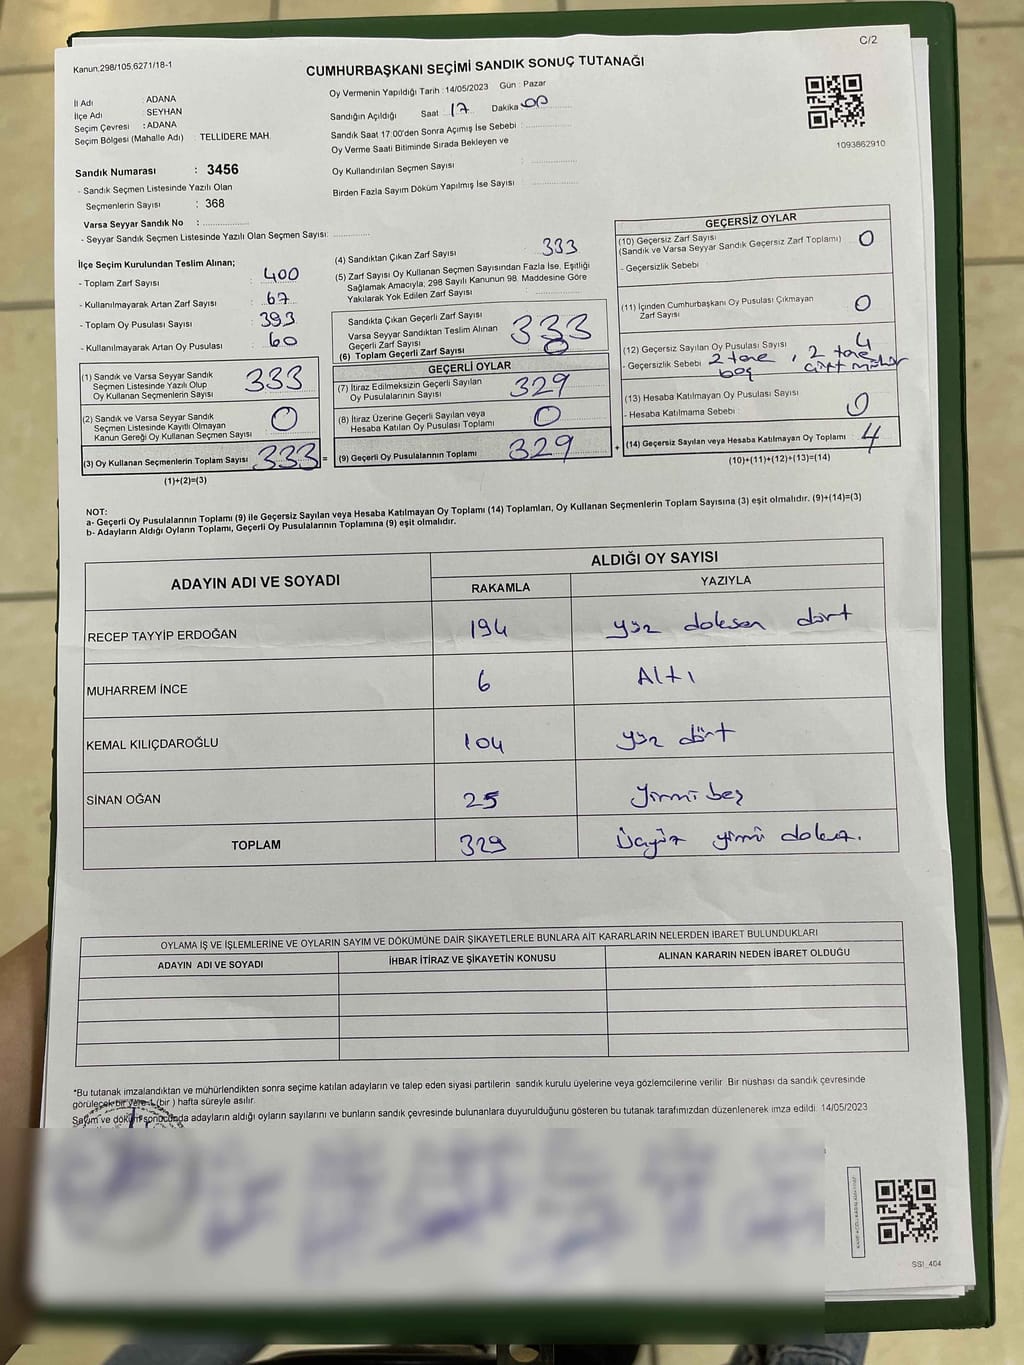 C/2
Kanun,298/105,6271/18-1
CUMHURBAŞKANI SEÇİMİ SANDIK SONUÇ TUTANAĞI
İl Adı : ADANA
İlçe Adı : SEYHAN
Seçim Çevresi : ADANA
Seçim Bölgesi (Mahalle Adı) : TELLİDERE MAH.
Oy Vermenin Yapıldığı Tarih : 14/05/2023 Gün : Pazar
Sandığın Açıldığı Saat 17 Dakika 00
Sandık Saat 17:00'den Sonra Açımış İse Sebebi :
Oy Verme Saati Bitiminde Sırada Bekleyen ve
Oy Kullandırılan Seçmen Sayısı :
Birden Fazla Sayım Döküm Yapılmış İse Sayısı :
1093862910
Sandık Numarası : 3456
- Sandık Seçmen Listesinde Yazılı Olan
Seçmenlerin Sayısı : 368
Varsa Seyyar Sandık No :
- Seyyar Sandık Seçmen Listesinde Yazılı Olan Seçmen Sayısı:
İlçe Seçim Kurulundan Teslim Alınan;
- Toplam Zarf Sayısı : 400
- Kullanılmayarak Artan Zarf Sayısı : 67
- Toplam Oy Pusulası Sayısı : 393
- Kullanılmayarak Artan Oy Pusulası : 60
(1) Sandık ve Varsa Seyyar Sandık
Seçmen Listesinde Yazılı Olup
Oy Kullanan Seçmenlerin Sayısı 333
(2) Sandık ve Varsa Seyyar Sandık
Seçmen Listesinde Kayıtlı Olmayan
Kanun Gereği Oy Kullanan Seçmen Sayısı 0
(3) Oy Kullanan Seçmenlerin Toplam Sayısı 333 =
(1)+(2)=(3)
(4) Sandıktan Çıkan Zarf Sayısı 333
(5) Zarf Sayısı Oy Kullanan Seçmen Sayısından Fazla İse, Eşitliği
Sağlamak Amacıyla; 298 Sayılı Kanunun 98. Maddesine Göre
Yakılarak Yok Edilen Zarf Sayısı :
Sandıkta Çıkan Geçerli Zarf Sayısı 333
Varsa Seyyar Sandıktan Teslim Alınan
Geçerli Zarf Sayısı 0
(6) Toplam Geçerli Zarf Sayısı
GEÇERLİ OYLAR
(7) İtiraz Edilmeksizin Geçerli Sayılan
Oy Pusulalarının Sayısı 329
(8) İtiraz Üzerine Geçerli Sayılan veya
Hesaba Katılan Oy Pusulası Toplamı 0
(9) Geçerli Oy Pusulalarının Toplamı 329 +
GEÇERSİZ OYLAR
(10) Geçersiz Zarf Sayısı
(Sandık ve Varsa Seyyar Sandık Geçersiz Zarf Toplamı) 0
- Geçersizlik Sebebi :
(11) İçinden Cumhurbaşkanı Oy Pusulası Çıkmayan
Zarf Sayısı 0
(12) Geçersiz Sayılan Oy Pusulası Sayısı : 4
- Geçersizlik Sebebi : 2 tane boş , 2 tane çift mühür
(13) Hesaba Katılmayan Oy Pusulası Sayısı : 0
- Hesaba Katılmama Sebebi :
(14) Geçersiz Sayılan veya Hesaba Katılmayan Oy Toplamı 4
(10)+(11)+(12)+(13)=(14)
NOT:
a- Geçerli Oy Pusulalarının Toplamı (9) ile Geçersiz Sayılan veya Hesaba Katılmayan Oy Toplamı (14) Toplamları, Oy Kullanan Seçmenlerin Toplam Sayısına (3) eşit olmalıdır. (9)+(14)=(3)
b- Adayların Aldığı Oyların Toplamı, Geçerli Oy Pusulalarının Toplamına (9) eşit olmalıdır.
ADAYIN ADI VE SOYADI ALDIĞI OY SAYISI
RAKAMLA YAZIYLA
RECEP TAYYİP ERDOĞAN 194 yüz doksan dört
MUHARREM İNCE 6 Altı
KEMAL KILIÇDAROĞLU 104 yüz dört
SİNAN OĞAN 25 yirmi beş
TOPLAM 329 üçyüz yirmi dokuz.
OYLAMA İŞ VE İŞLEMLERİNE VE OYLARIN SAYIM VE DÖKÜMÜNE DAİR ŞİKAYETLERLE BUNLARA AİT KARARLARIN NELERDEN İBARET BULUNDUKLARI
ADAYIN ADI VE SOYADI İHBAR İTİRAZ VE ŞİKAYETİN KONUSU ALINAN KARARIN NEDEN İBARET OLDUĞU
*Bu tutanak imzalandıktan ve mühürlendikten sonra seçime katılan adayların ve talep eden siyasi partilerin sandık kurulu üyelerine veya gözlemcilerine verilir. Bir nüshası da sandık çevresinde
görülecek bir yere 1 (bir ) hafta süreyle asılır.
Sayım ve döküm sonucunda adayların aldığı oyların sayılarını ve bunların sandık çevresinde bulunanlara duyurulduğunu gösteren bu tutanak tarafımızdan düzenlenerek imza edildi. 14/05/2023
SSI_404